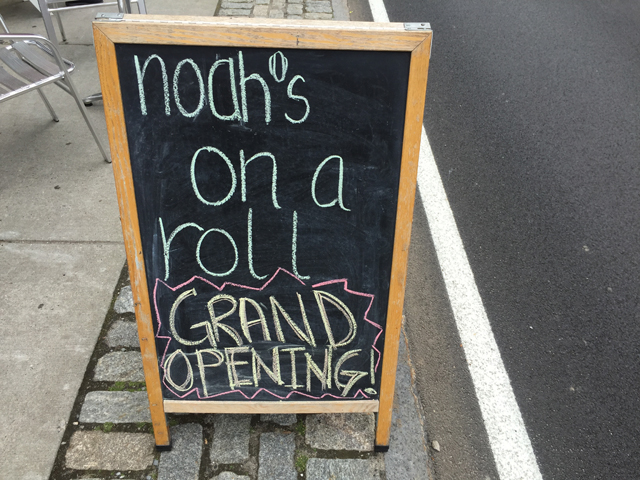 noah's
on a
roll
GRAND
OPENING!